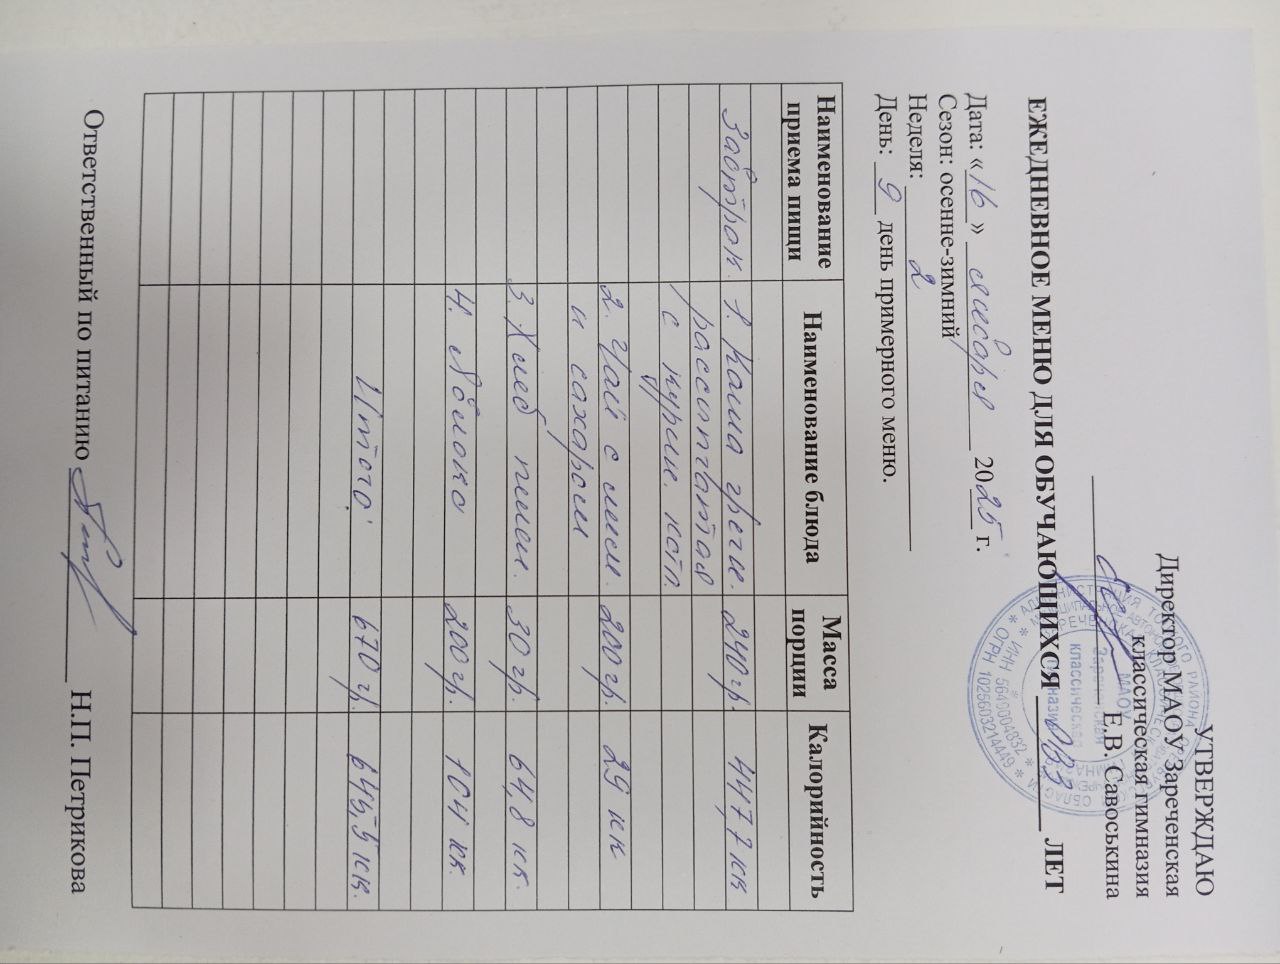 УТВЕРЖДАЮ
Директор МАОУ Зареченская
классическая гимназия
Е.В. Савоськина
ЕЖЕДНЕВНОЕ МЕНЮ ДЛЯ ОБУЧАЮЩИХСЯ ОВЗ ЛЕТ
Дата: «16» января 2025 г.
Сезон: осенне-зимний
Неделя: 2
День: 9 день примерного меню.
Наименование приема пищи Наименование блюда Масса порции Калорийность
Завтрак. 1. Каша гречн. 240 гр. 447,7 кк
рассыпчатая
с курин. котл.
2. Чай с лим. 200 гр. 29 кк
и сахаром
3. Хлеб пшен. 30 гр. 64,8 кк.
4. Яблоко 200 гр. 104 кк.
Итого: 670 гр. 645,5 кк.
Ответственный по питанию Н.П. Петрикова
ИНН 5640004832
ОГРН 1025603214449